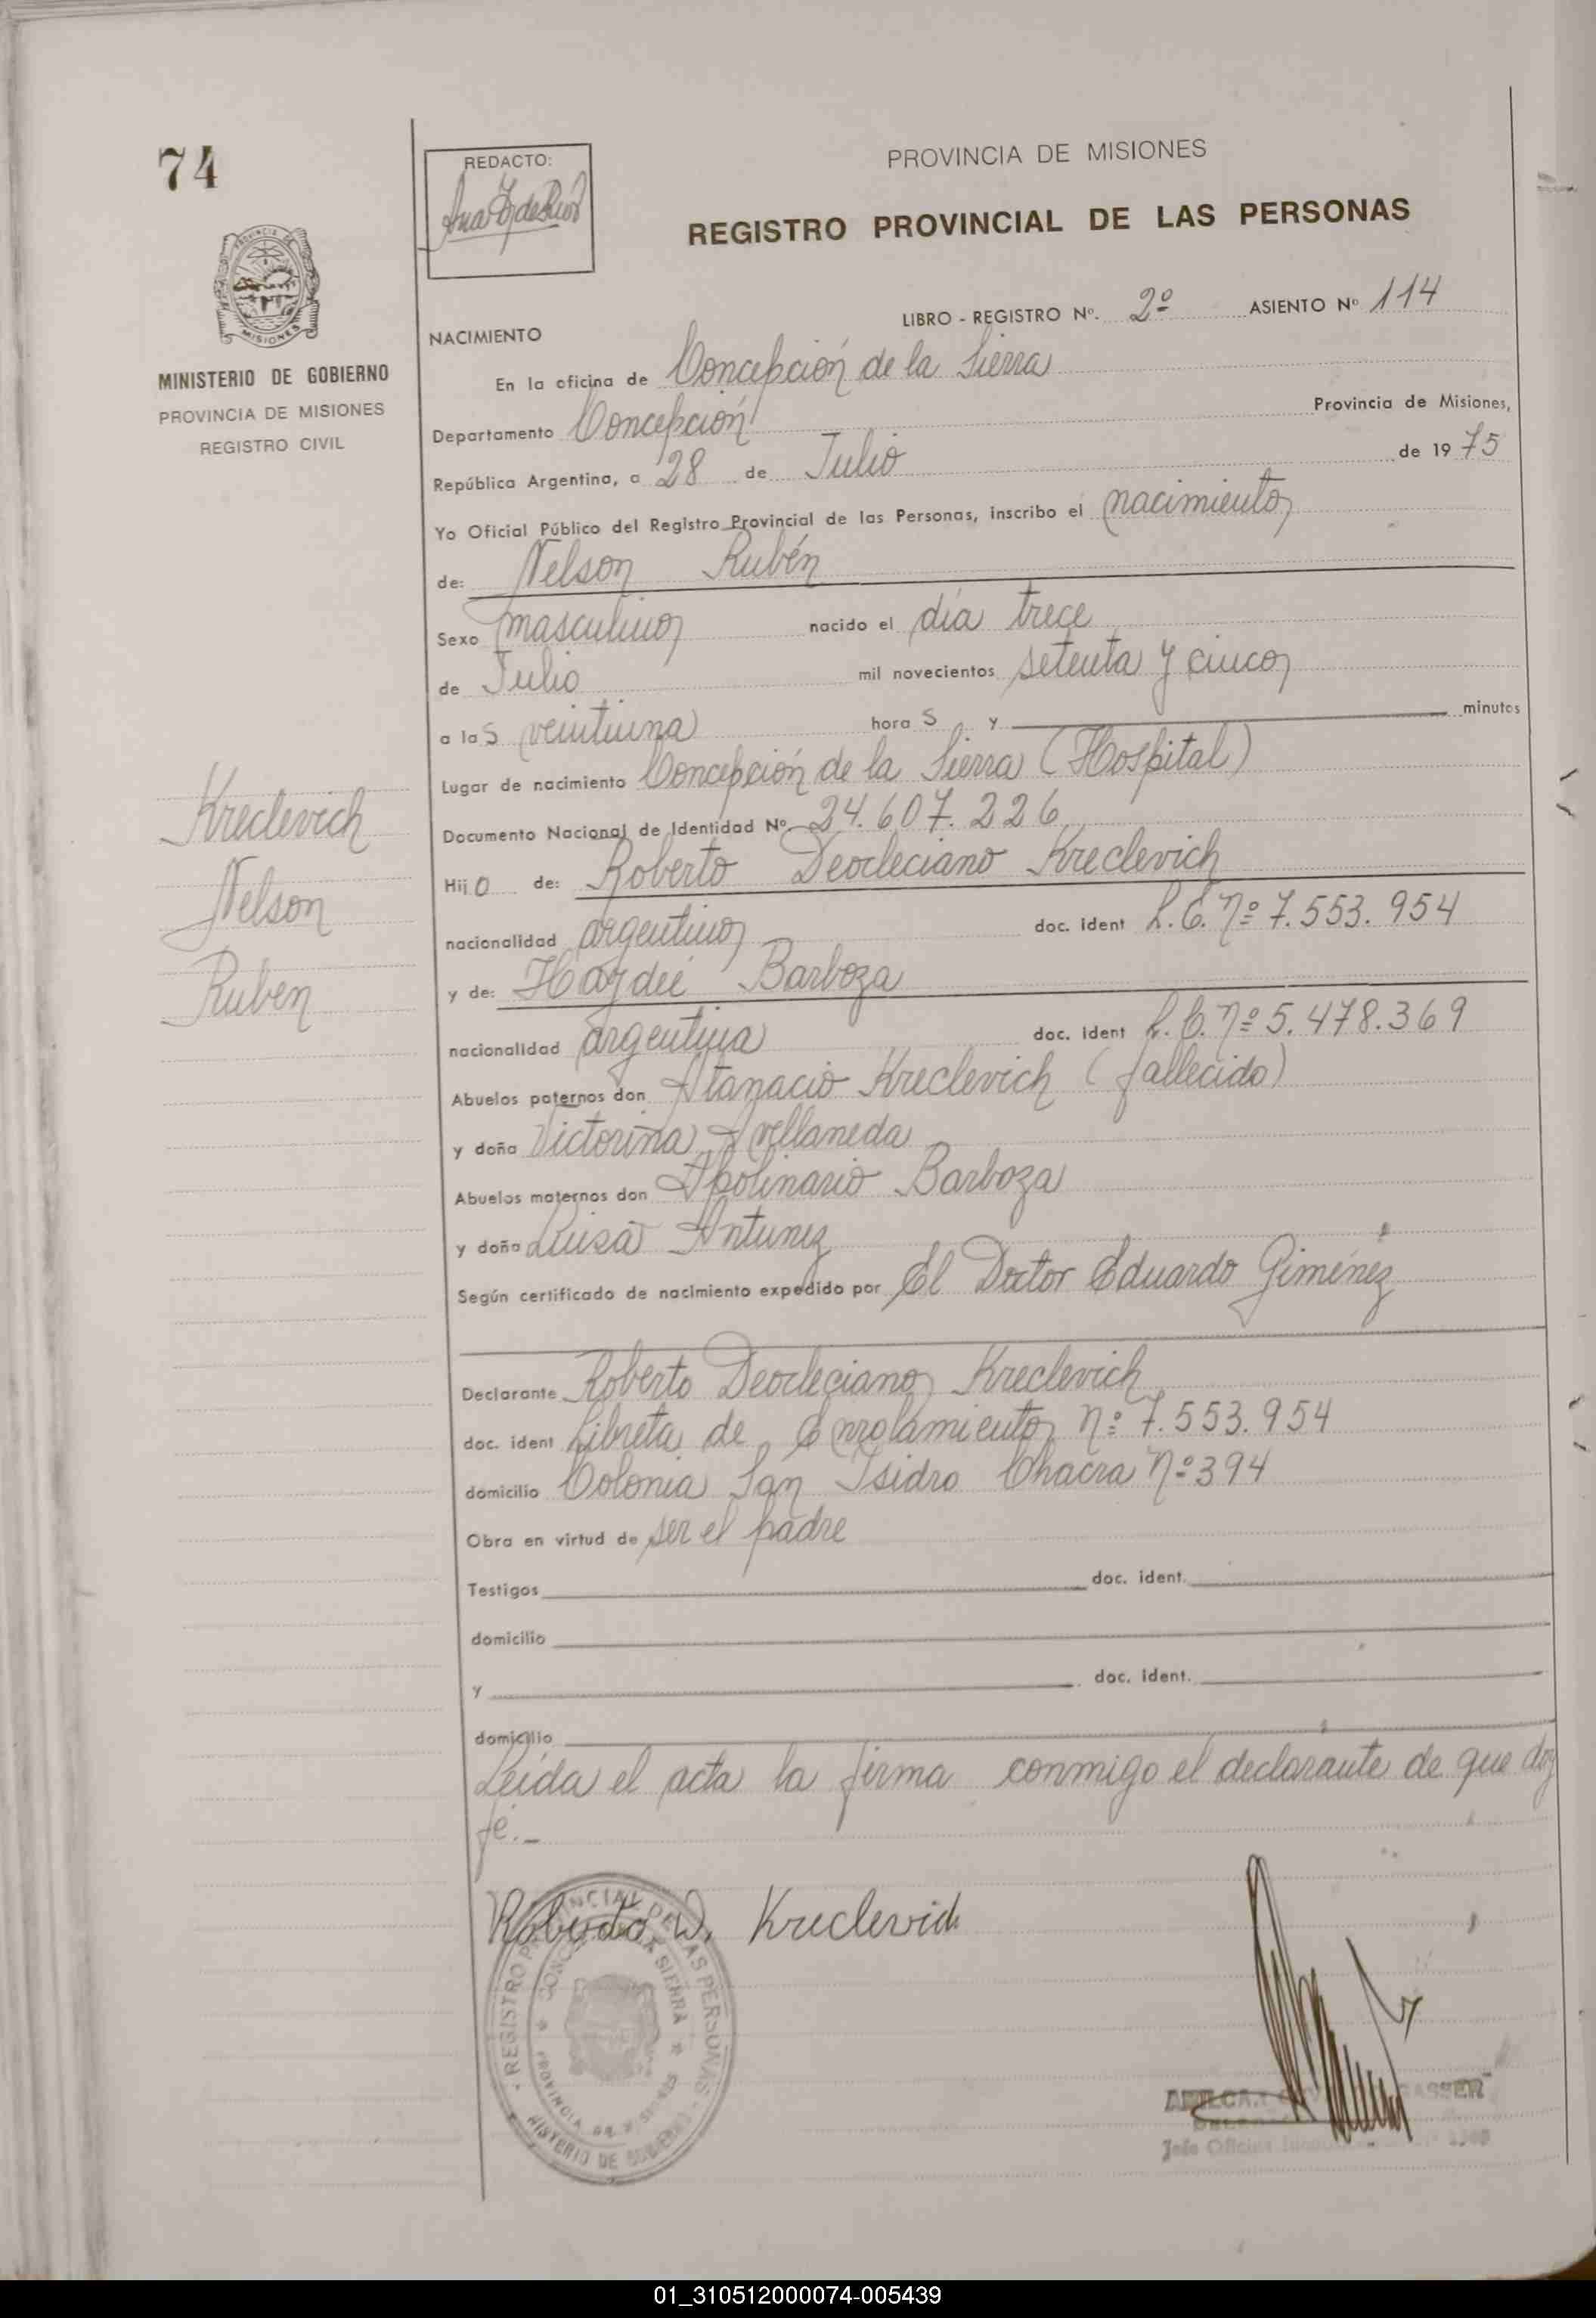 74
REDACTO:
PROVINCIA DE MISIONES
REGISTRO PROVINCIAL DE LAS PERSONAS
LIBRO - REGISTRO Nº. 2º ASIENTO Nº 114
MISIONES
MINISTERIO DE GOBIERNO
PROVINCIA DE MISIONES
REGISTRO CIVIL
NACIMIENTO
En la oficina de Concepción de la Sierra
Departamento Concepción Provincia de Misiones,
República Argentina, a 28 de Julio de 1975
Yo Oficial Público del Registro Provincial de las Personas, inscribo el nacimiento
de: Nelson Rubén
Sexo masculino nacido el día trece
de Julio mil novecientos setenta y cinco
a las veintiuna horas y minutos
Lugar de nacimiento Concepción de la Sierra (Hospital)
Documento Nacional de Identidad Nº 24.607.226
Hijo de: Roberto Deocleciano Kreclevich
nacionalidad argentino doc. ident L.E. nº 7.553.954
y de: Haydeé Barboza
nacionalidad argentina doc. ident L.C. nº 5.478.369
Abuelos paternos don Atanacio Kreclevich (fallecido)
y doña Victorina Avellaneda
Abuelos maternos don Apolinario Barboza
y doña Luisa Antunez
Según certificado de nacimiento expedido por El Doctor Eduardo Giménez
Kreclevich
Nelson
Ruben
Declarante Roberto Deocleciano Kreclevich
doc. ident Libreta de Enrolamiento nº 7.553.954
domicilio Colonia San Isidro Chacra nº 394
Obra en virtud de ser el padre
Testigos doc. ident.
domicilio
y doc. ident.
domicilio
Leída el acta la firma conmigo el declarante de que doy
fé.-
Roberto D. Kreclevich
REGISTRO PROVINCIAL DE LAS PERSONAS
CONCEPCION DE LA SIERRA
PROVINCIA DE MISIONES
MINISTERIO DE GOBIERNO
Jefe Oficina
01_310512000074-005439